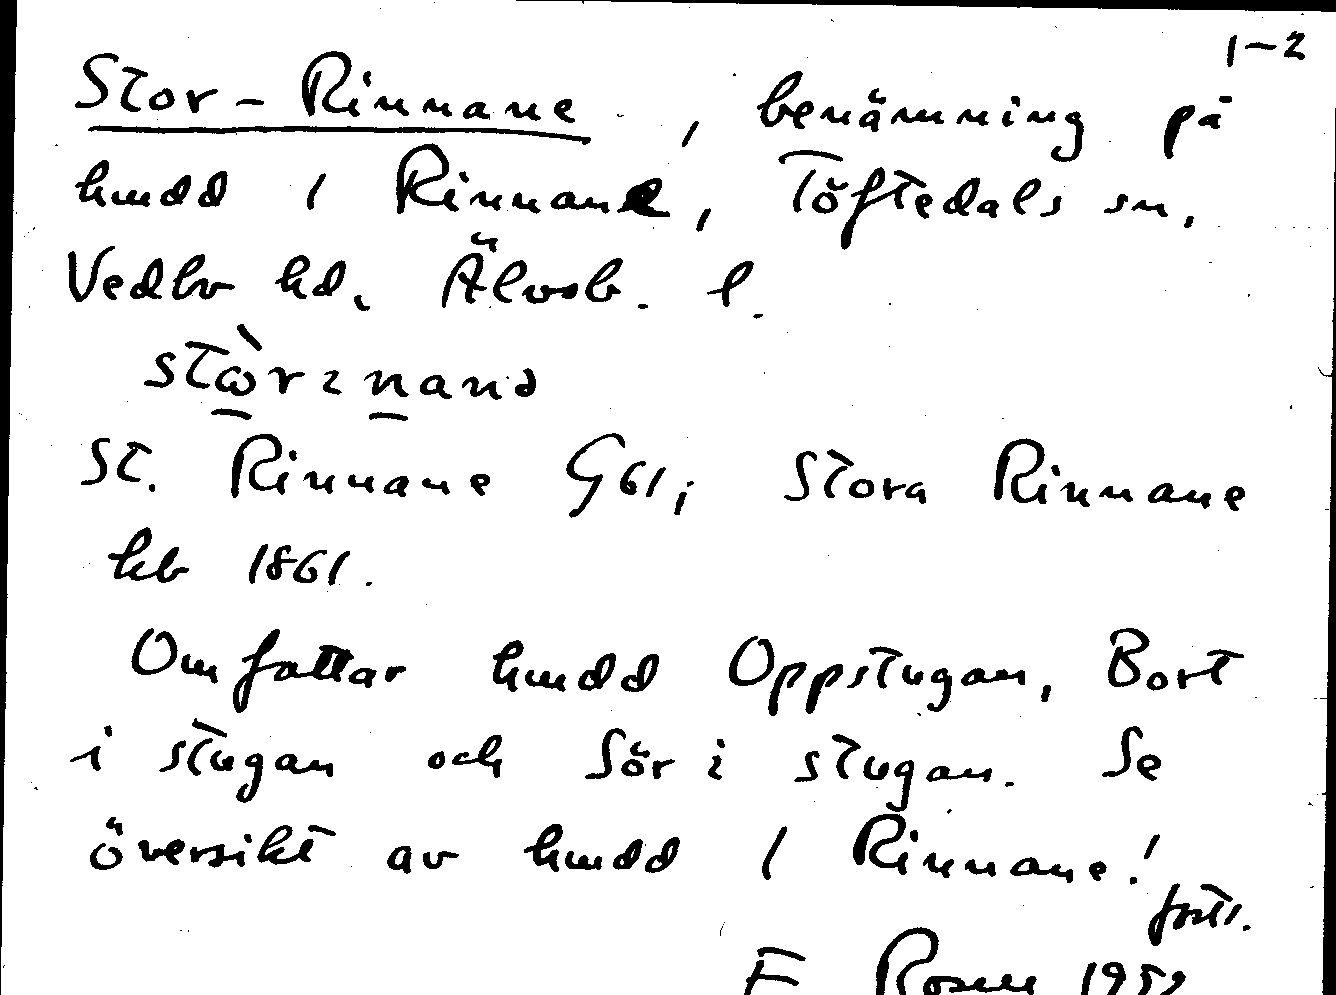 1-2
Stor-Rinnane, benämning på
hmdd i Rinnane, Töftedals sn,
Vedbo hd, Älvsb. l.
St. Rinnane G61; Stora Rinnane
hb 1861.
Omfattar hmdd Oppstugan, Bort
i stugan och Sör i stugan. Se
översikt av hmdd i Rinnane!
forts.
F Rosell 1952